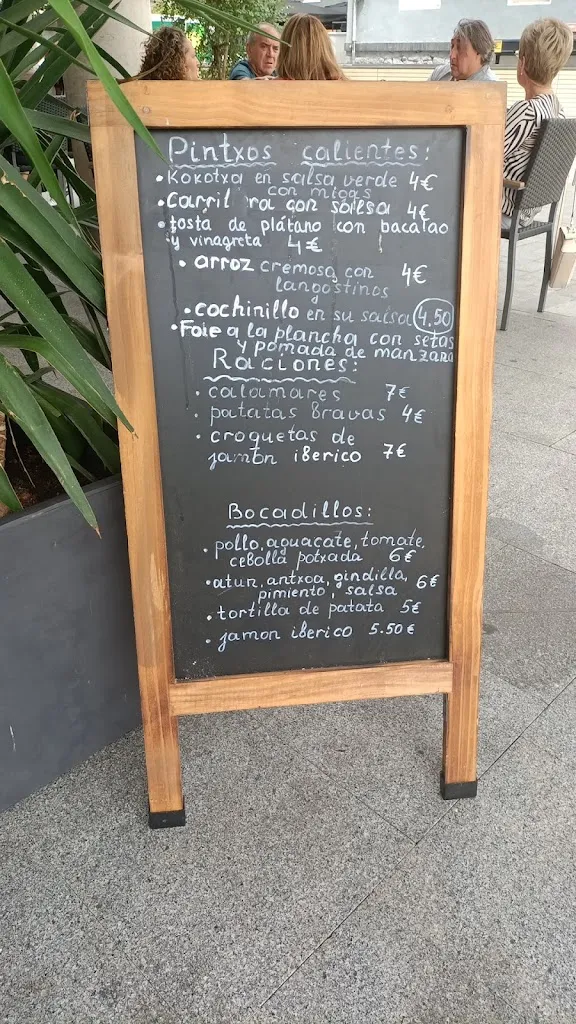 Pintxos calientes:
• Kokotxa en salsa verde 4€
con migas
• carril ra con salsa 4€
• tosta de plátano con bacalao
y vinagreta 4€
• arroz cremoso con 4€
langostinos
• cochinillo en su salsa 4.50
• Foie a la plancha con setas
y pomada de manzana
Raciones:
• calamares 7€
• patatas bravas 4€
• croquetas de
jamon iberico 7€
Bocadillos:
• pollo, aguacate, tomate,
cebolla potxada 6€
• atun, antxoa, gindilla, 6€
pimiento, salsa
• tortilla de patata 5€
• jamon iberico 5.50€